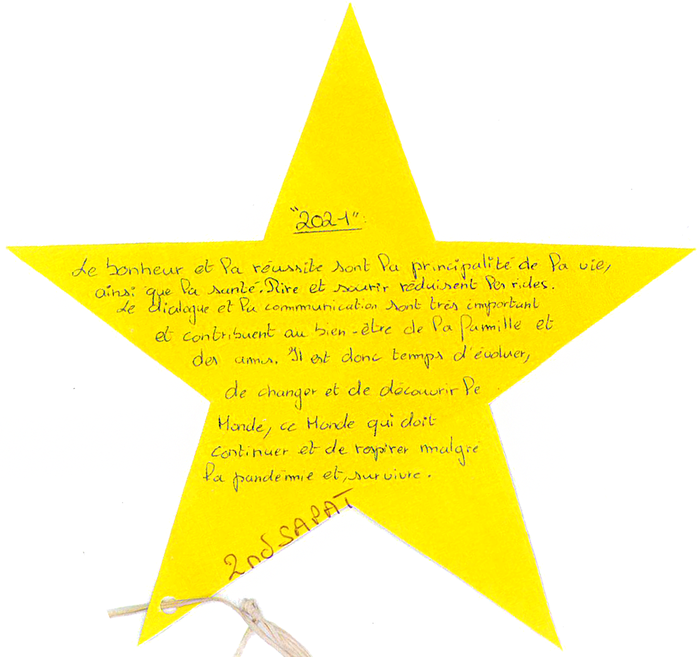 "2021":
Le bonheur et la réussite sont la principalité de la vie,
ainsi que la santé. Rire et sourir réduisent les rides.
Le dialogue et la communication sont très important
et contribuent au bien-être de la famille et
des amis. Il est donc temps d'évoluer,
de changer et de découvrir le
Monde, ce Monde qui doit
continuer et de respirer malgré
la pandémie et, survivre.
2nd SAPAT